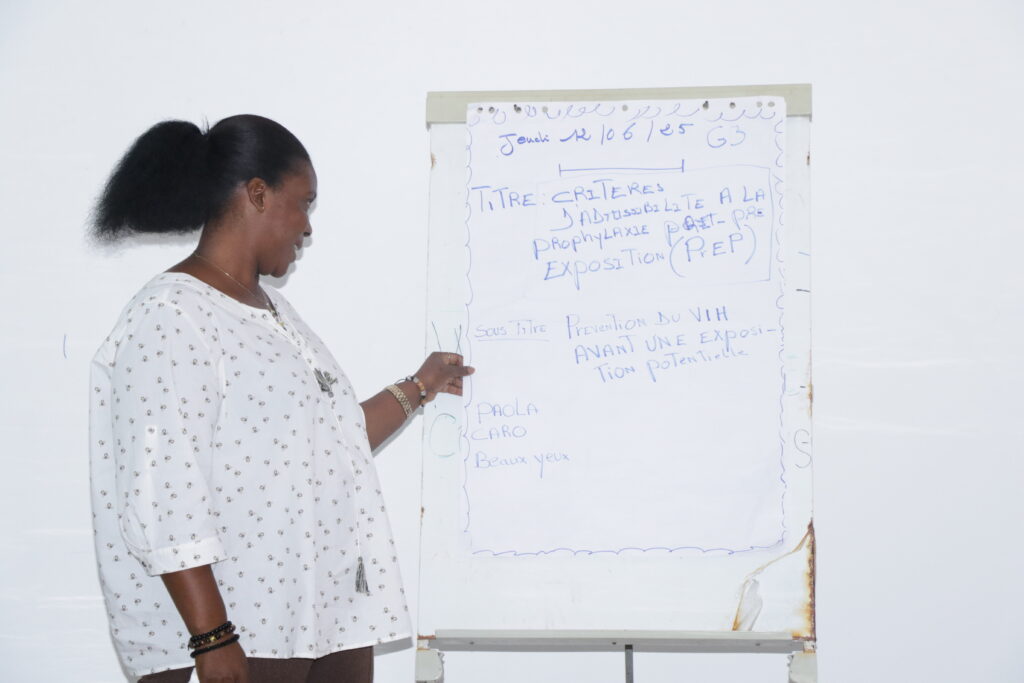 Jeudi 12/06/25 G3
TITRE: CRITERES
D'ADMISSIBILITE A LA
PROPHYLAXIE PRE
EXPOSITION (PrEP)
SOUS TITRE PREVENTION DU VIH
AVANT UNE EXPOSI-
TION POTENTIELLE
PAOLA
CARO
Beaux yeux